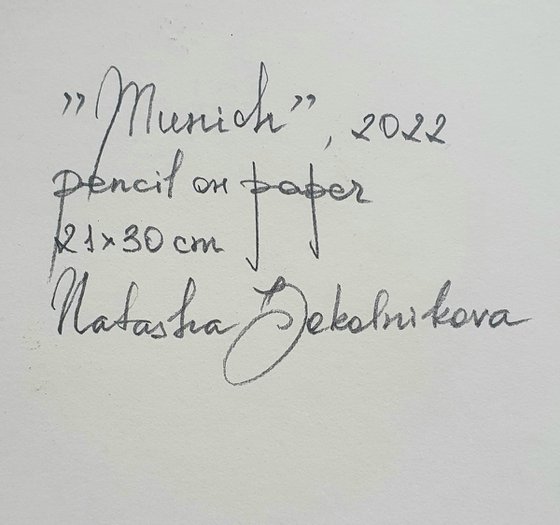 "Munich", 2022
pencil on paper
21×30 cm
Natasha Sokolnikova